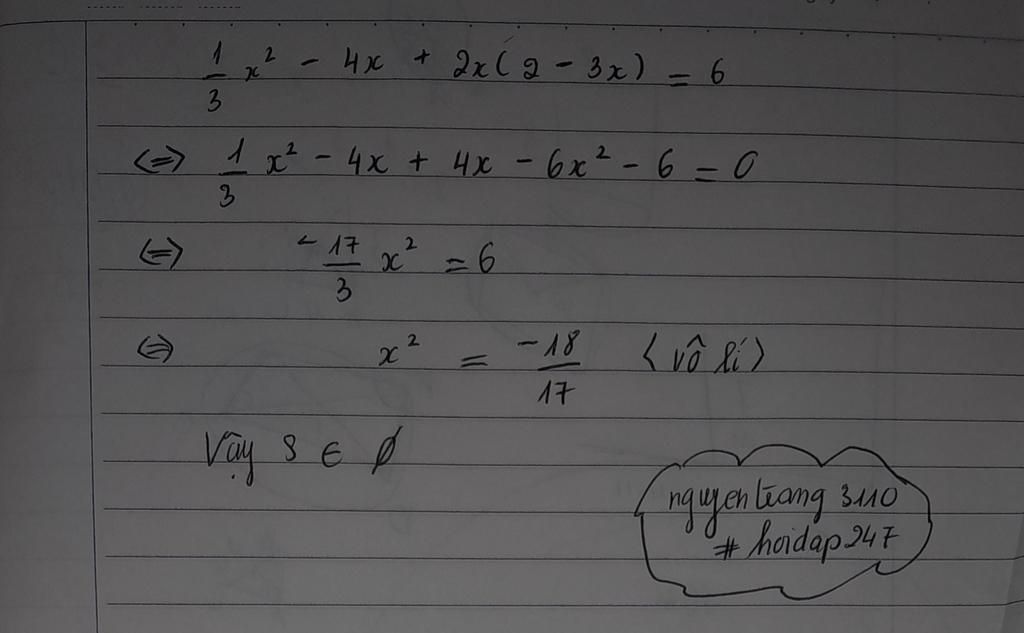 1/3 x² - 4x + 2x(2 - 3x) = 6
<=> 1/3 x² - 4x + 4x - 6x² - 6 = 0
<=> -17/3 x² = 6
<=> x² = -18/17 <vô lí>
Vậy S ∈ ∅
nguyentrang 3110
# hoidap247